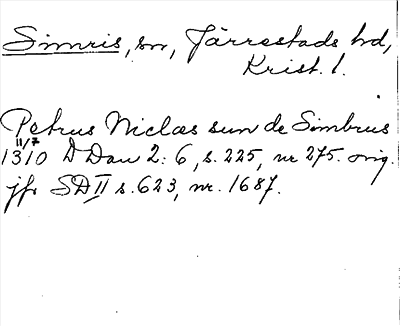 Simris, sn, Järrestads hd,
Krist. l.
Petrus Niclæs sun de Simbrus
11/7
1310 D Dan 2:6, s. 225, nr 275. orig.
jfr SD II s. 623, nr. 1687.